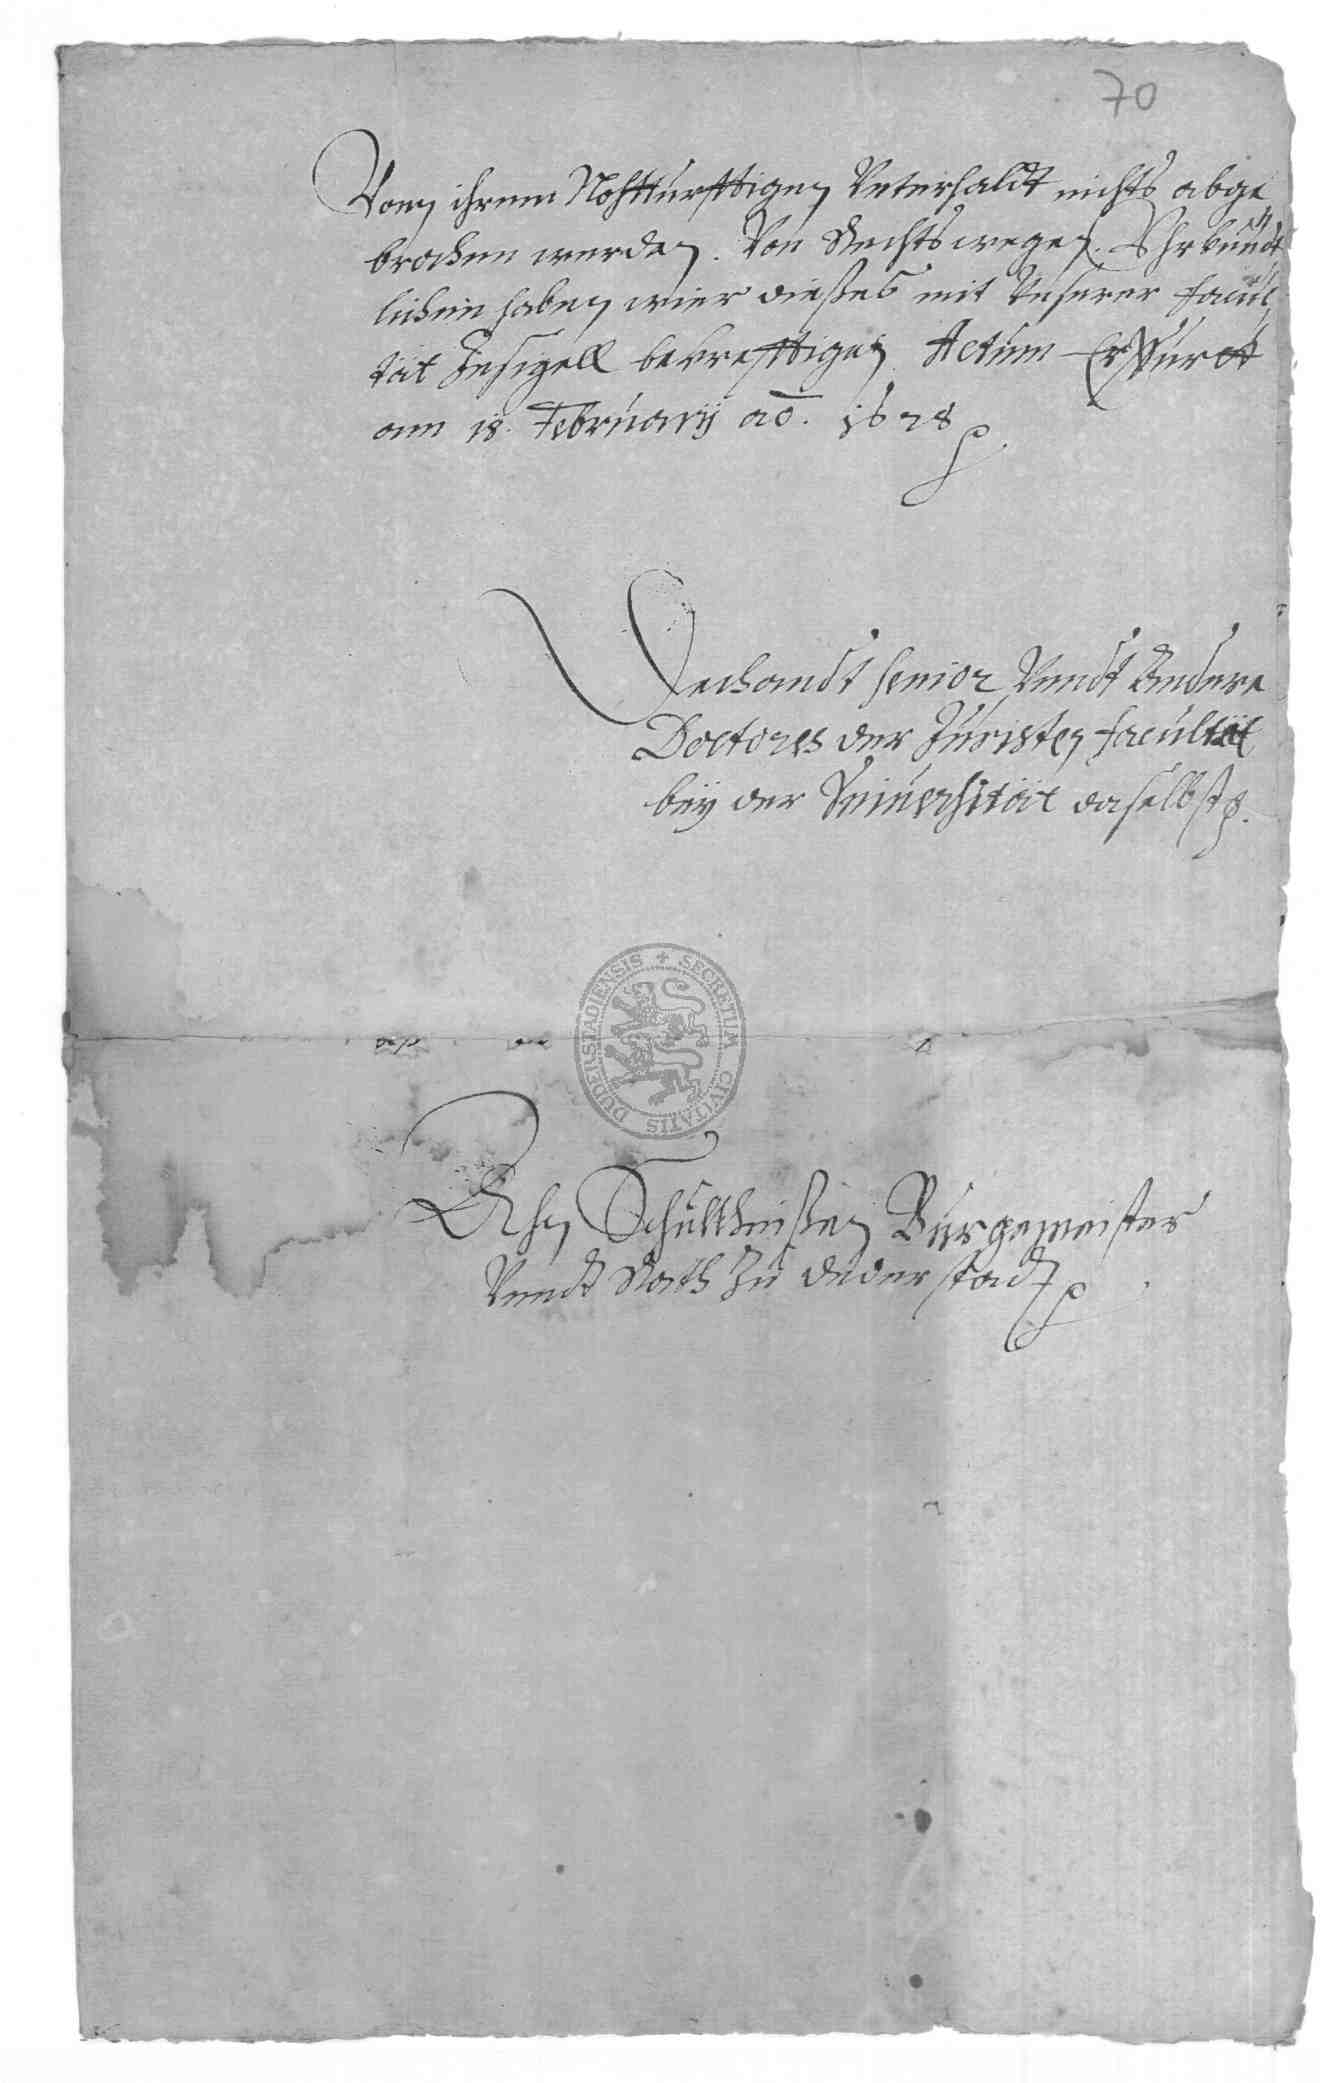 70
Vom ihrem Nohtturfftigen Vnterhaldt nichts abge
brochen werden. Von Rechts wegen. Vhrkundt
lichen haben wier dießes mit Vnserer Facul
tät Insigell bekrefftigen. Actum Erffurdt
am 18. February ao. 1628
Dechandt senior Vundt Andere
Doctores der Juristen Facultät
bey der Vniuersität daselbst.
SECRETUM CIVITATIS DUDERSTADIENSIS
Schultheißen Burgemeister
Vundt Rath Zu Duderstadt